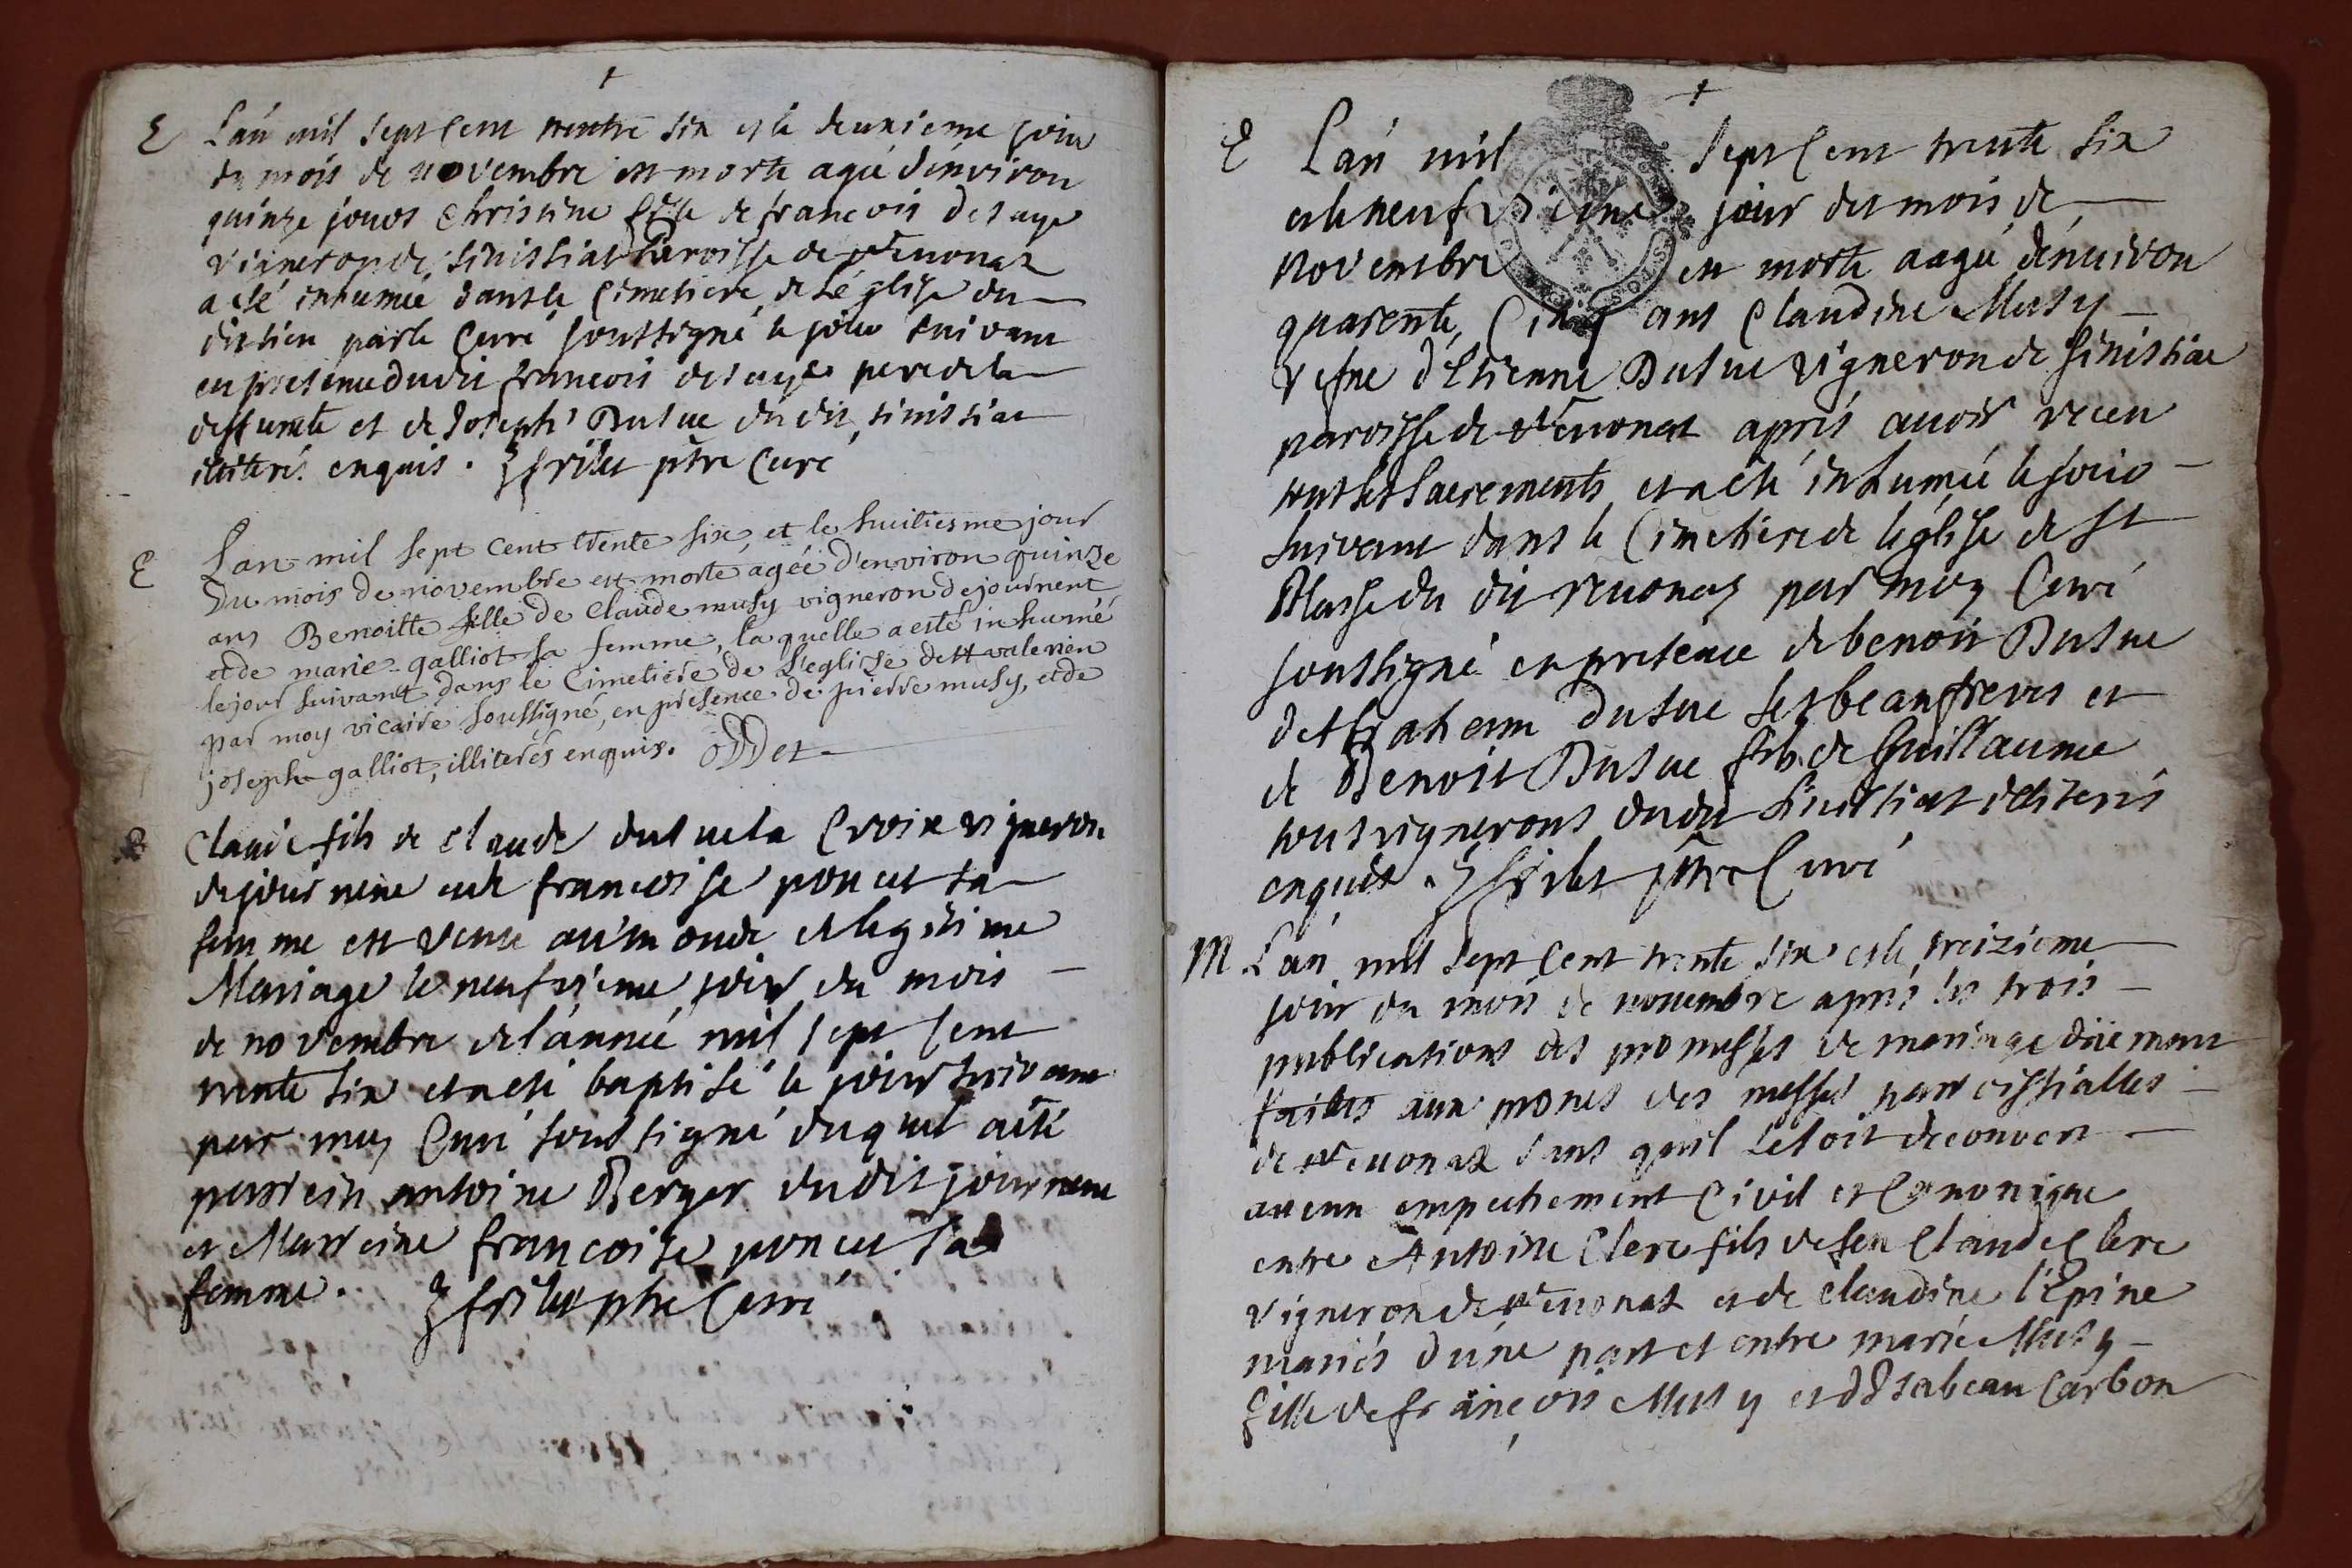 †
E L'an mil sept cent trente six et le deuxieme jour
du mois de novembre est morte agée d'environ
quinze jours Christine fille de francois desaye
vigneron de sinissiat paroisse de Revonaz
a esté inhumée dans le Cimetiere de L'église du
dit lieu par le Curé soussigné le jour suivant
en presence dudit francois desaye pere de la
deffunte et de Joseph Dusuc du dit sinissiat
illiterés enquis. frilet ptre Curé
E Lan mil sept cent trente six, et le huitiesme jour
Du mois de novembre est morte agéé d'environ quinze
ans Benoitte fille de Claude musy vigneron de journent
et de marie galliot sa femme, la quelle a esté inhumé
le jour suivant dans le Cimetiere de L'eglize de st valerien
par moy vicaire soussigné, en presence de pierre musy, et de
joseph galliot, illiterés enquis. oDDet
B Claude fils de claude dusuc la Croix vigneron
de journent et de francoise poncet sa
femme est venu au monde de legitime
Mariage le neufvieme jour du mois
de novembre de l'année mil sept cent
trente six et a eté baptisé le jour suivant
par moy Curé soussigné duquel a été
parrein antoine Berger dudit journent
et Marreine françoise poncet sa
femme. frilet ptre Curé
†
E L'an mil sept cent trente six
et le neufvieme jour du mois de
novembre est morte aagée d'environ
quarente Cinq ans Claudine Musy
vefve d'Etienne Dusuc vigneron de sinissiat
paroisse de Revonaz après avoir receu
tous les sacrements et a eté inhumée le jour
suivant dans le Cimetiere de l'église de st
Blaise du dit revonaz par moy Curé
soussigné en presence de benoit Dusuc
de dusuc ses beaufreres et
de Benoit Dusuc fils de Guillaume
tous vignerons dudit sinissiat illiterés
enquis. frilet ptre Curé
M L'an mil sept cent trente six et le treizieme
jour du mois de novembre après les trois
publications des promesses de mariage düement
faites aux prones des messes parroissialles
de Revonaz sans qu'il se soit decouvert
aucun empechement Civil et Canonique
entre Antoine Clerc fils de feu Claude Clerc
vigneron de Revonaz et de claudine l'Epine
mariés d'une part et entre marie Musy
fille de françois Musy et d'Isabeau Carbon